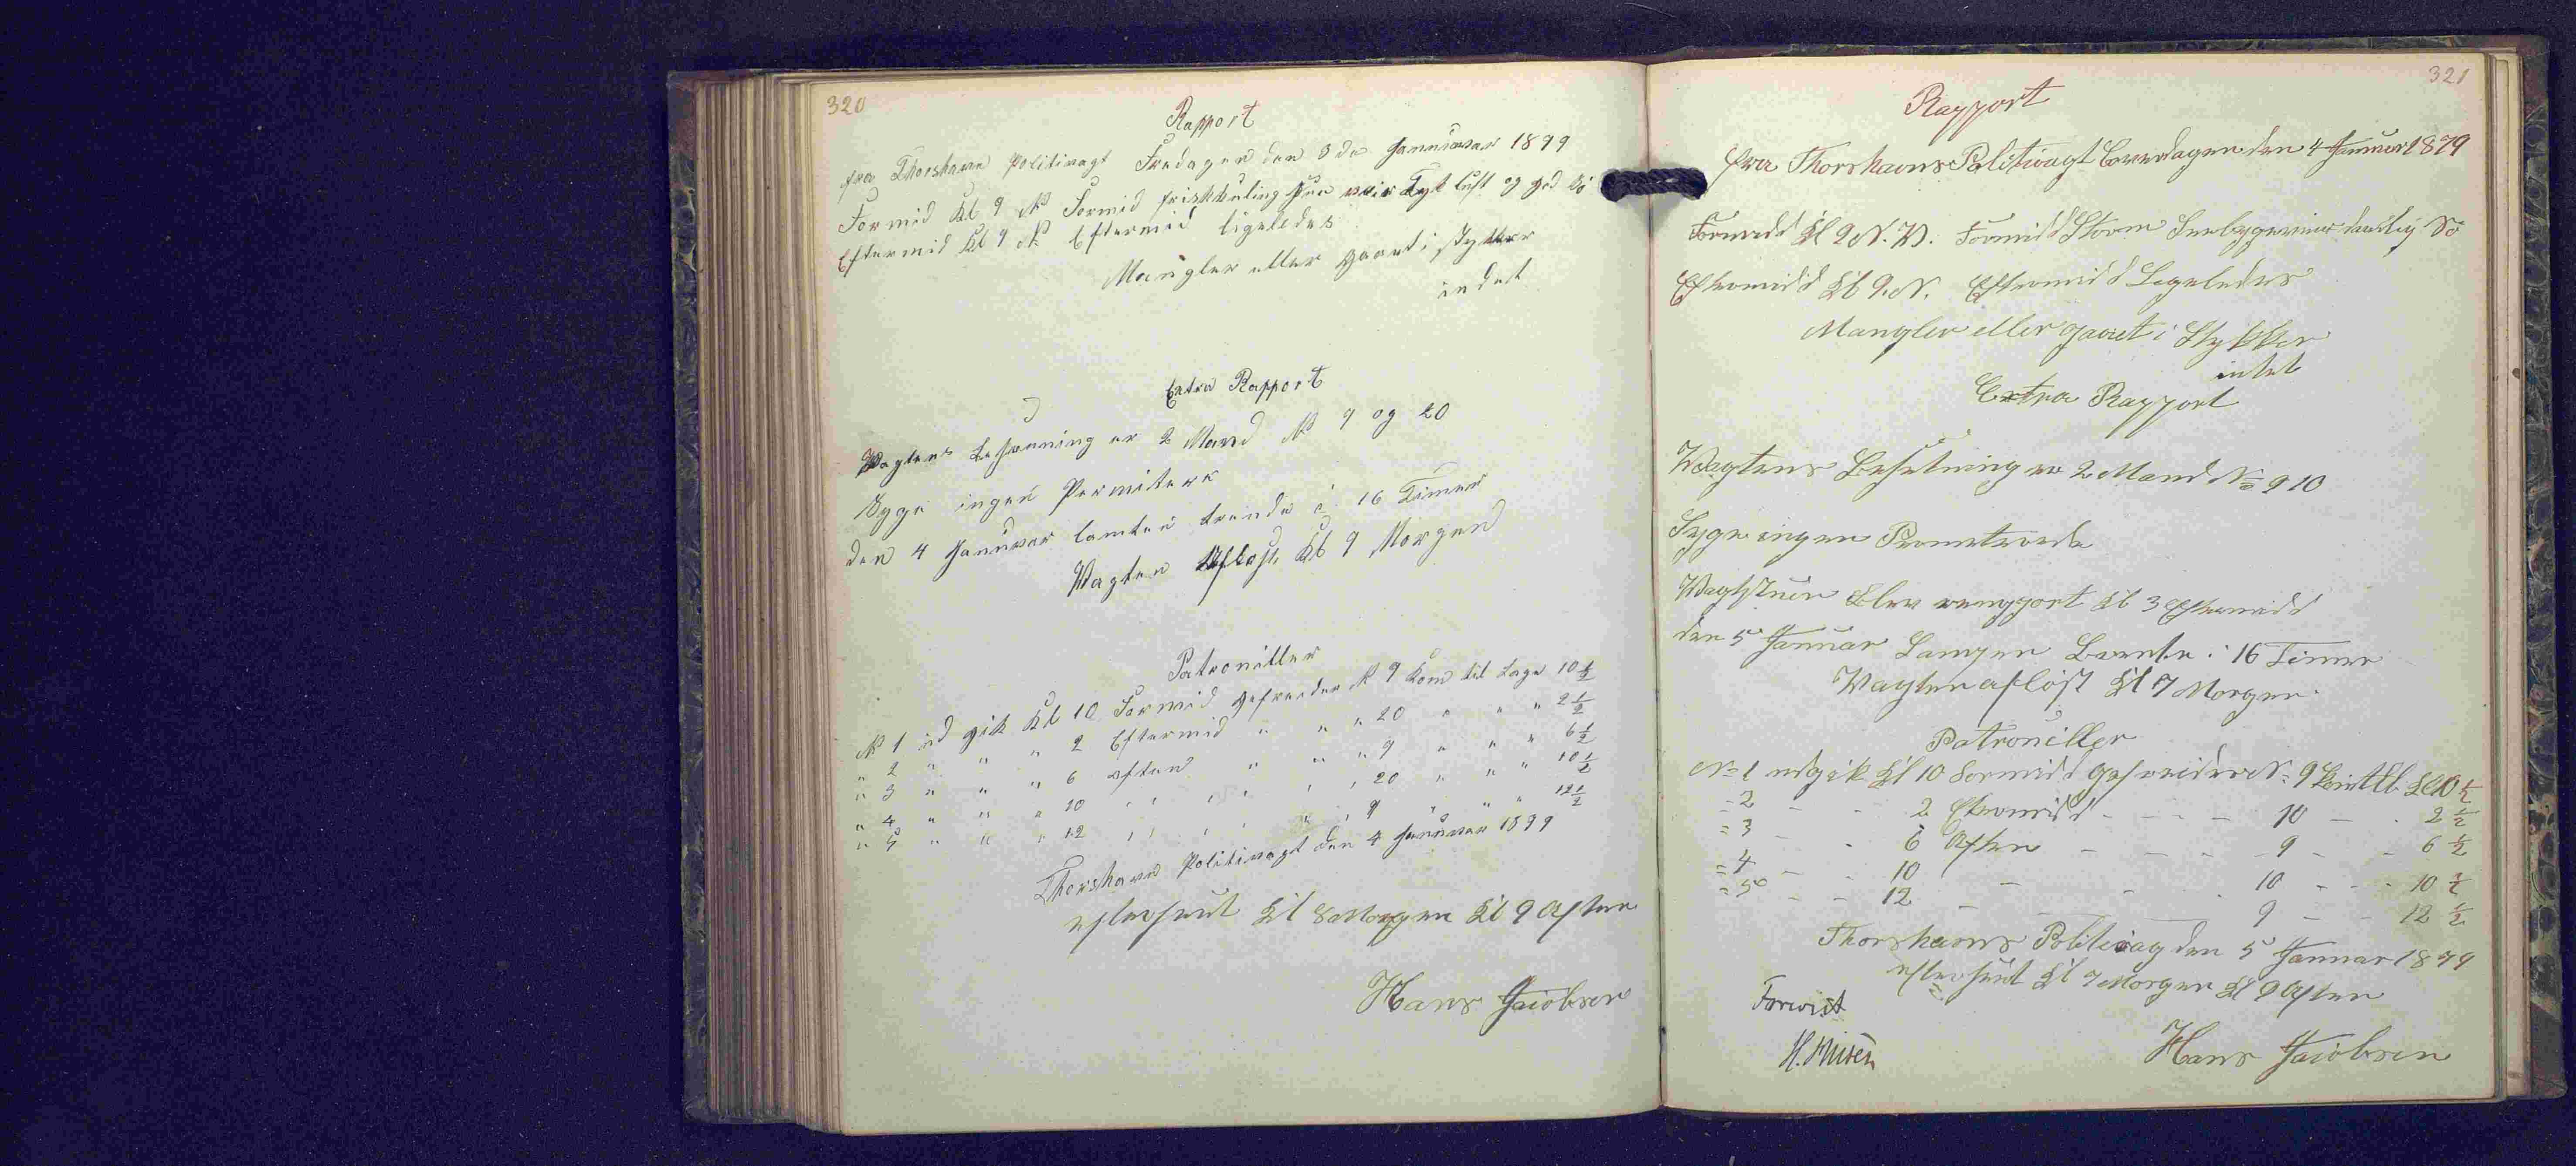 320
Rapport
fra Thorshavn Politivagt Fredagen den 3de Januvar 1879
Formid Kl 9 N Formid frisk kuling Snee veir Tyk luft og god Sö
Eftermid Kl 9 N Eftermid ligeledes
Mangler eller gaaet i stykker
indet
Extra Rapport
Vagtens besætning er 2 Mand № 9 og 20
Syge ingen Permiterte
den 4 Januvar lamten brende i 16 Timer
Vagten Afløst Kl 9 Morgen
Patroniller
№ 1 ud gik Kl 10 Formid gefreider № 9 kom til bage 10 ½
" 2 " " " 2 Eftermid " " " 20 " " " 2 ½
" 3 " " " 6 aften " " " 9 " " " 6 ½
" 4 " " " 10 " " " " 20 " " " 10 ½
" 5 " " " 12 " " " " 9 " " " 12 ½
Thorshavn Politivagt den 4 Januvar 1879
efterseet Kl 8 Morgen Kl 9 Aften
Hans Jacobsen
321
Rapport
fra Thorshavns Politivagt Løverdagen den 4 Januar 1879
Formidd Kl 9 N. V. Formidd Storm Sneebygeveir Sö
Eftermidd Kl 9. N. Eftermidd Ligeledes
Mangler eller gaaet i Stykker
intet
Extra Rapport
Wagtens Besetning er 2 Mand № 9 10
Syge ingen
Wagtstuen blev rengjort Kl 3 Eftermidd
den 5 Januar Lampen Brente i 16 Timer
Wagten afløst Kl 7 Morgen
Patroniller
№ 1 udgik Kl 10 Formidd gefreider №. 9 Kl 10 ½
= 2 - - 2 Eftermidd - - - - 10 - - 2 ½
= 3 - - 6 Aften - - - 9 - - 6 ½
= 4 - - 10 - - 10 - - - 10 ½
= 5 - - 12 - - - 9 - - 12 ½
Thorshavns Politivag den 5 Januar 1879
efterseet Kl 7 Morgen Kl 9 Aften
Forevist
Hans Jacobsen